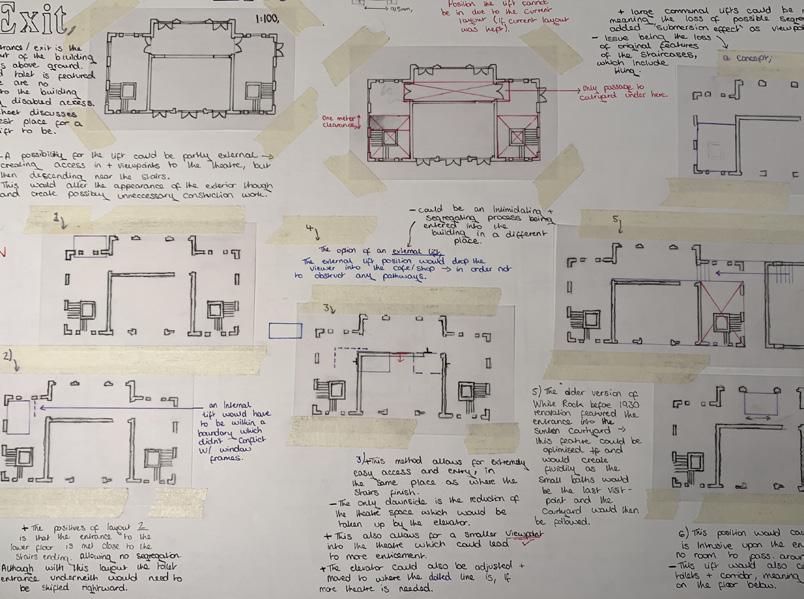 Exit,
1:100,
ntrance / exit is the
of the building
above ground.
toilet is featured
are no
to the building
disabled access.
sheet discusses
best place for a
lift to be.
Position the lift cannot
be in due to the current
layout (if current layout
was kept).
One meter
clearance
Only passage to
Courtyard under here.
+ large communal lifts could be
meaning the loss of possible
added "submersion effect" as
- Issue being the loss
of original features
of the Staircases,
which include
tiling.
a concept;
- A possibility for the lift could be partly external →
creating access in + viewpoints to the theatre, but
then descending near the stairs.
This would alter the appearance of the exterior though
and create possibly unneccessary construction work.
- could be an intimidating +
segregating process being
entered into the
building in a different
place.
1
4
The option of an external lift.
The external lift position would drop the
viewer into the cafe/shop → in order not
to obstruct any pathways.
5
2)
an internal
lift would have
to be within a
boundary which
didnt conflict
w/ window
frames.
3
5) The older version of
White Rock before 1930
renovation featured the
entrance into the
Sunken Courtyard →
this feature could be
optimised + and
would create
fluidity as the
Small baths would
be the last visit-
point and the
Courtyard would then
be followed.
+ The positives of layout 2
is that the entrance to the
lower floor is met close to the
stairs ending, allowing no segregation.
Although with this layout the toilet
entrance underneath would need to
be shifted rightward.
3/+This method allows for extremely
easy access and entry, in
the same place as where the
stairs finish.
- The only downside is the reduction of
the theatre space which would be
taken up by the elevator.
+ This also allows for a smaller viewpoint
into the theatre which could lead
to more enticement.
+ The elevator could also be adjusted +
moved to where the dotted line is, if
more theatre is needed.
6) This position would
is intrusive upon the
no room to pass
- This lift would also
toilets + corridor, meaning
on the floor below.